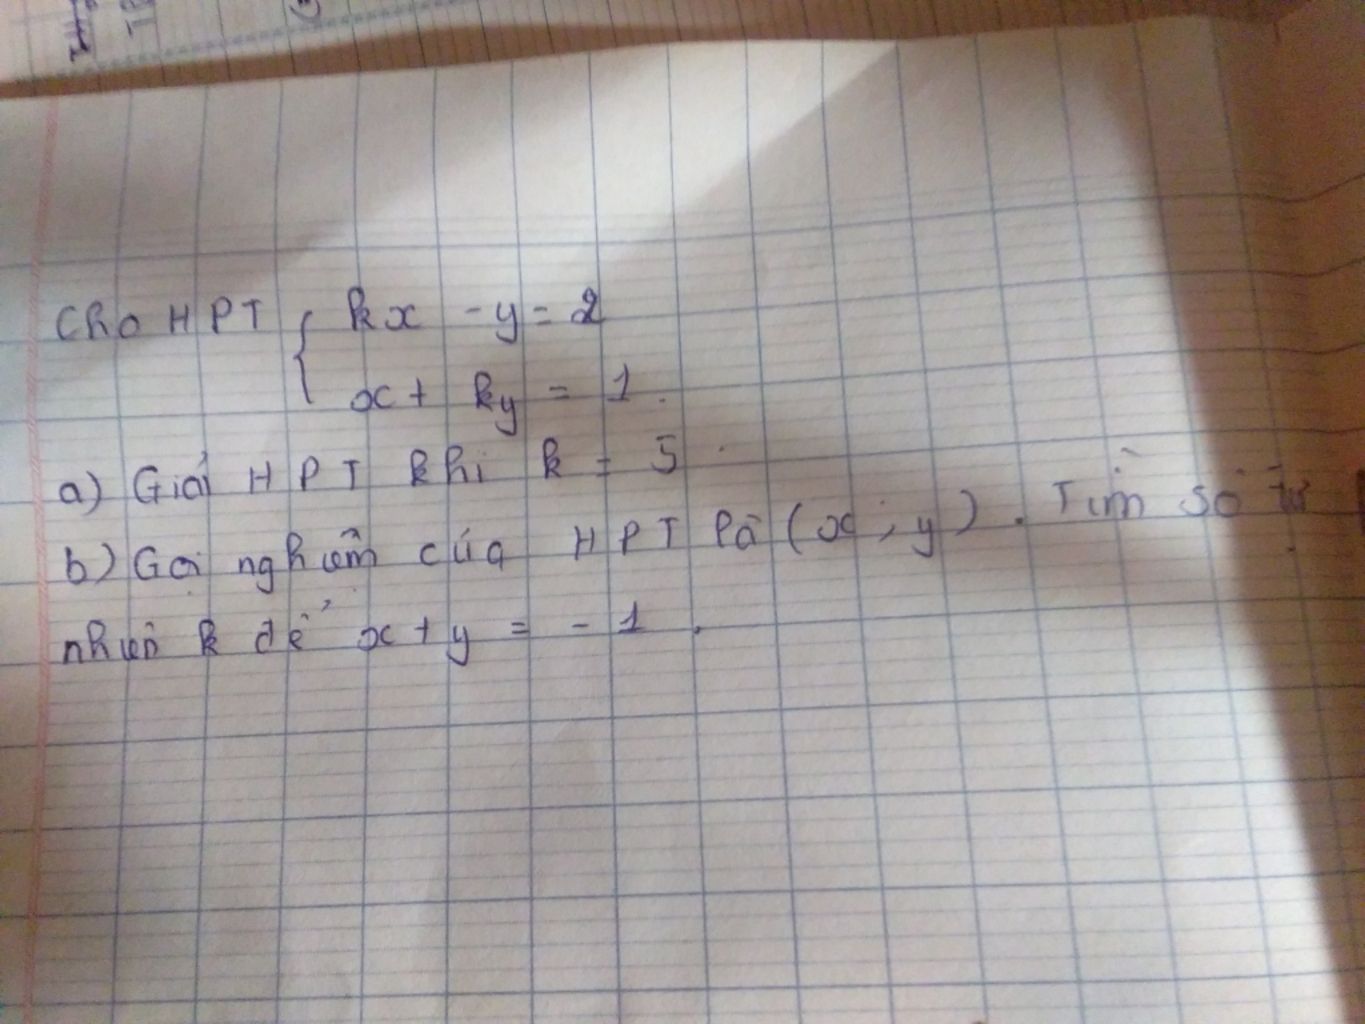 Cho HPT { kx - y = 2
x + ky = 1.
a) Giải HPT khi k = 5.
b) Gọi nghiệm của HPT là (x; y). Tìm số tự
nhiên k để x + y = -1.